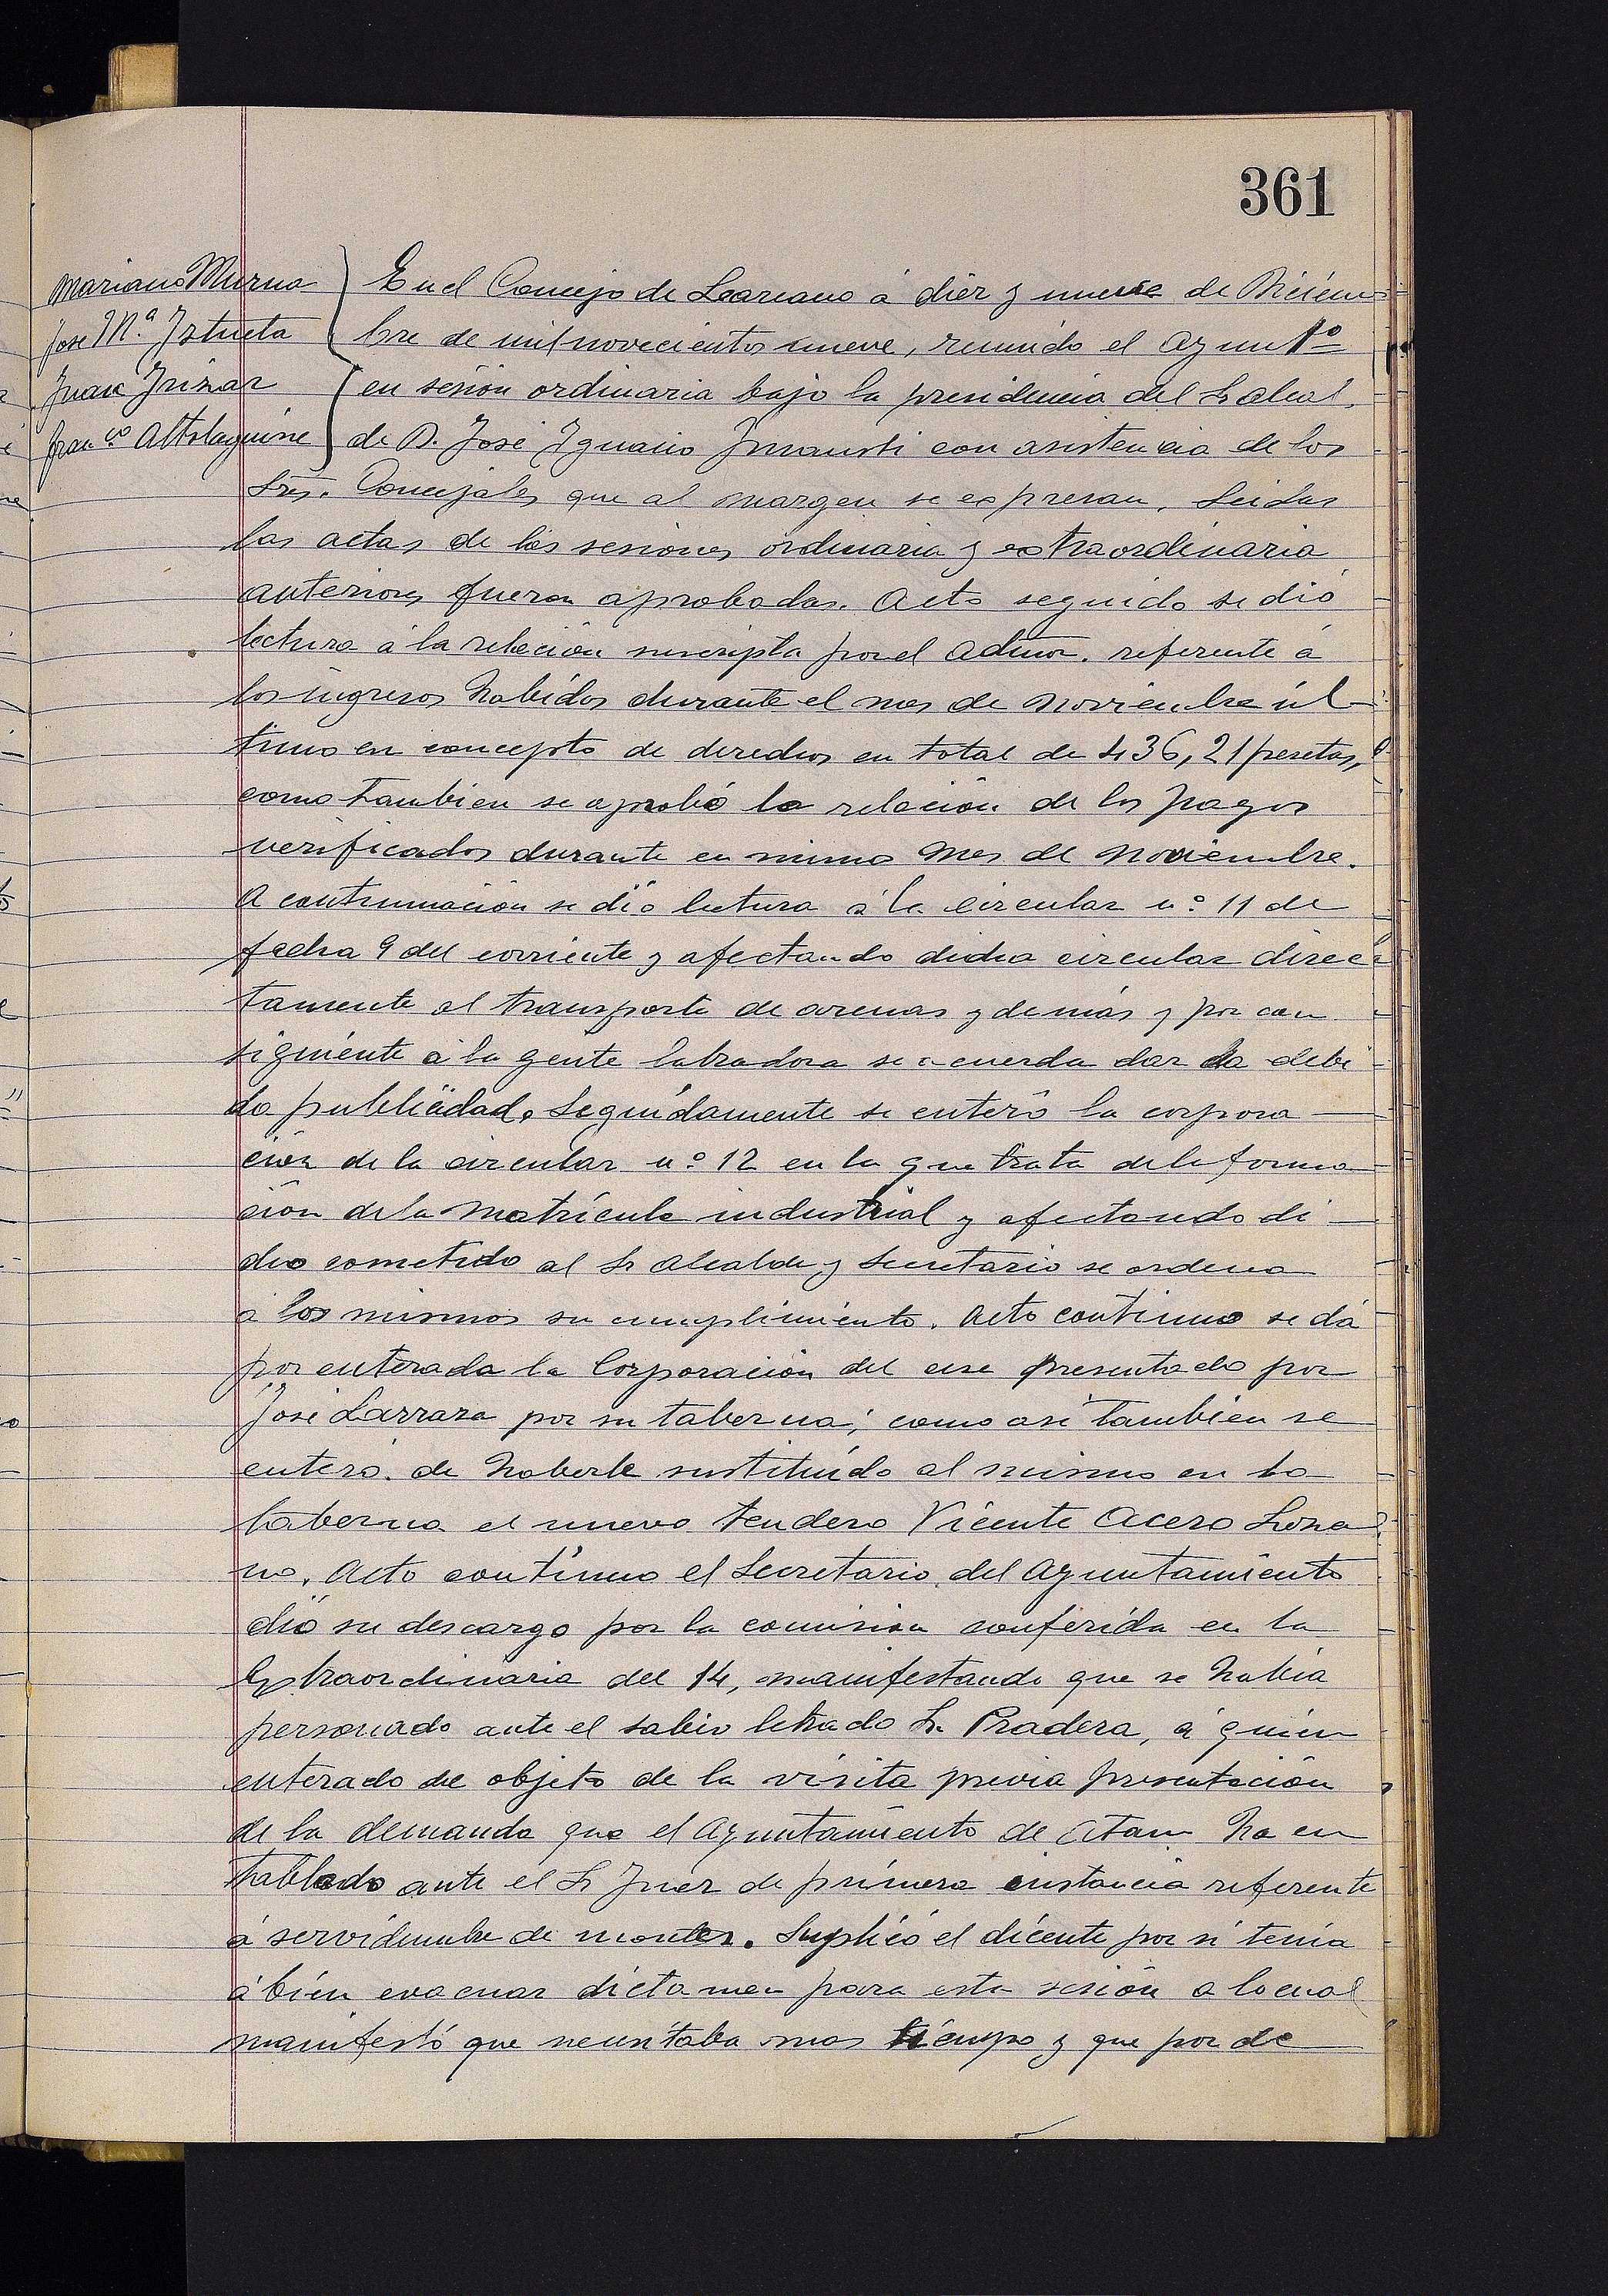 361
Mariano Murua
José Mª Iztueta
Juan Irizar
Franco Altolaguirre
En el Concejo de Lazcano á diez y nueve de Diciem
bre de mil novecientos nueve, reunido el Ayunto
en sesión ordinaria bajo la presidencia del Sr Alcal
de D. José Ignacio Imausti con asistencia de los
Sres. Concejales que al margen se expresan, Leidas
las actas de las sesiones ordinaria y extraordinaria
anteriores fueron aprobadas. Acto seguido se dió
lectura á la relación suscripta por el Admor. referente á
los ingresos habidos durante el mes de Noviembre úl
timo en concepto de derechos en total de 436,21 pesetas,
como tambien se aprobó la relación de los pagos
verificados durante en mismo mes de Noviembre.
A continuación se dió lectura á la circular n.º 11 de
fecha 9 del corriente y afectando dicha circular direc
tamente al transporte de arenas y demás y por con
siguiente á la gente labradora se acuerda dar la debi
da publicidad. Seguidamente se enteró la corpora
ción de la circular n.º 12 en la que trata de la forma
ción de la matrícula industrial y afectando di
cho cometido al Sr Alcalde y Secretario se ordena
á los mismos su cumplimiento. Acto continuo se dá
por enterada la Corporación del cese presentado por
José Larraza por su taberna; como asi tambien se
enteró de haberle sustituído al mismo en la
taberna el nuevo tendero Vicente Acero Loza
no. Acto continuo el Secretario del Ayuntamiento
dió su descargo por la comision conferida en la
Extraordinaria del 14, manifestando que se habia
personado ante el sabio letrado Sr. Pradera, á quien
enterado del objeto de la visita previa presentación
de la demanda que el Ayuntamiento de Ataun ha en
tablado ante el Sr Juez de primera instancia referente
á servidumbre de montes. Suplicó el dicente por si tenia
á bien evacuar dictamen para esta sesión a lo cual
manifestó que necesitaba mas tiempo y que por de